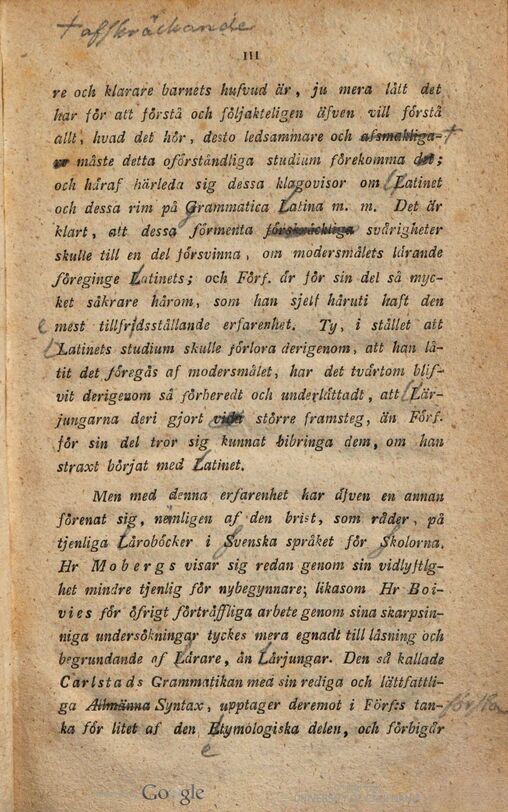 + afskräckande
III
re och klarare barnets hufvud är, ju mera lått det
har för att förstå och följakteligen äfven vill förstå
allt, hvad det hör, desto ledsammare och afsmakliga- +
re måste detta oförståndliga studium förekomma det;
och håraf härleda sig dessa klagovisor om Latinet
och dessa rim på Grammatica Latina m. m. Det är
klart, att dessa förmenta förskräckliga svårigheter
skulle till en del försvinna, om modersmålets lärande
föreginge Latinets; och Förf. är för sin del så myc-
ket säkrare hårom, som han sjelf håruti haft den
e mest tillfridsställande erfarenhet. Ty, i stället att
Latinets studium skulle förlora derigenom, att han lå-
tit det föregås af modersmålet, har det tvärtom blif-
vit derigenom så förberedt och underlåttadt, att Lär-
jungarna deri gjort vida större framsteg, än Förf.
för sin del tror sig kunnat bibringa dem, om han
straxt börjat med Latinet.
Men med denna erfarenhet har äfven en annan
förenat sig, nemligen af den brist, som råder, på
tjenliga Låroböcker i Svenska språket för Skolorna.
Hr Mobergs visar sig redan genom sin vidlyftig-
het mindre tjenlig för nybegynnare; likasom Hr Boi-
vies för öfrigt förträffliga arbete genom sina skarpsin-
niga undersökningar tyckes mera egnadt till låsning och
begrundande af Lärare, än Lärjungar. Den så kallade
Carlstads Grammatikan med sin rediga och lättfattli-
ga Allmänna Syntax, upptager deremot i Förf:s tan-
ka för litet af den Etymologiska delen, och förbigår
e
Google